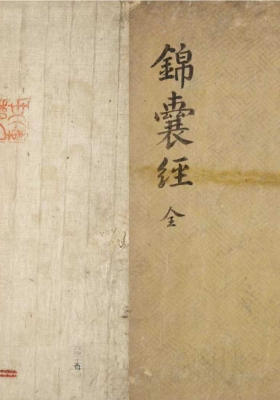 錦囊經 全